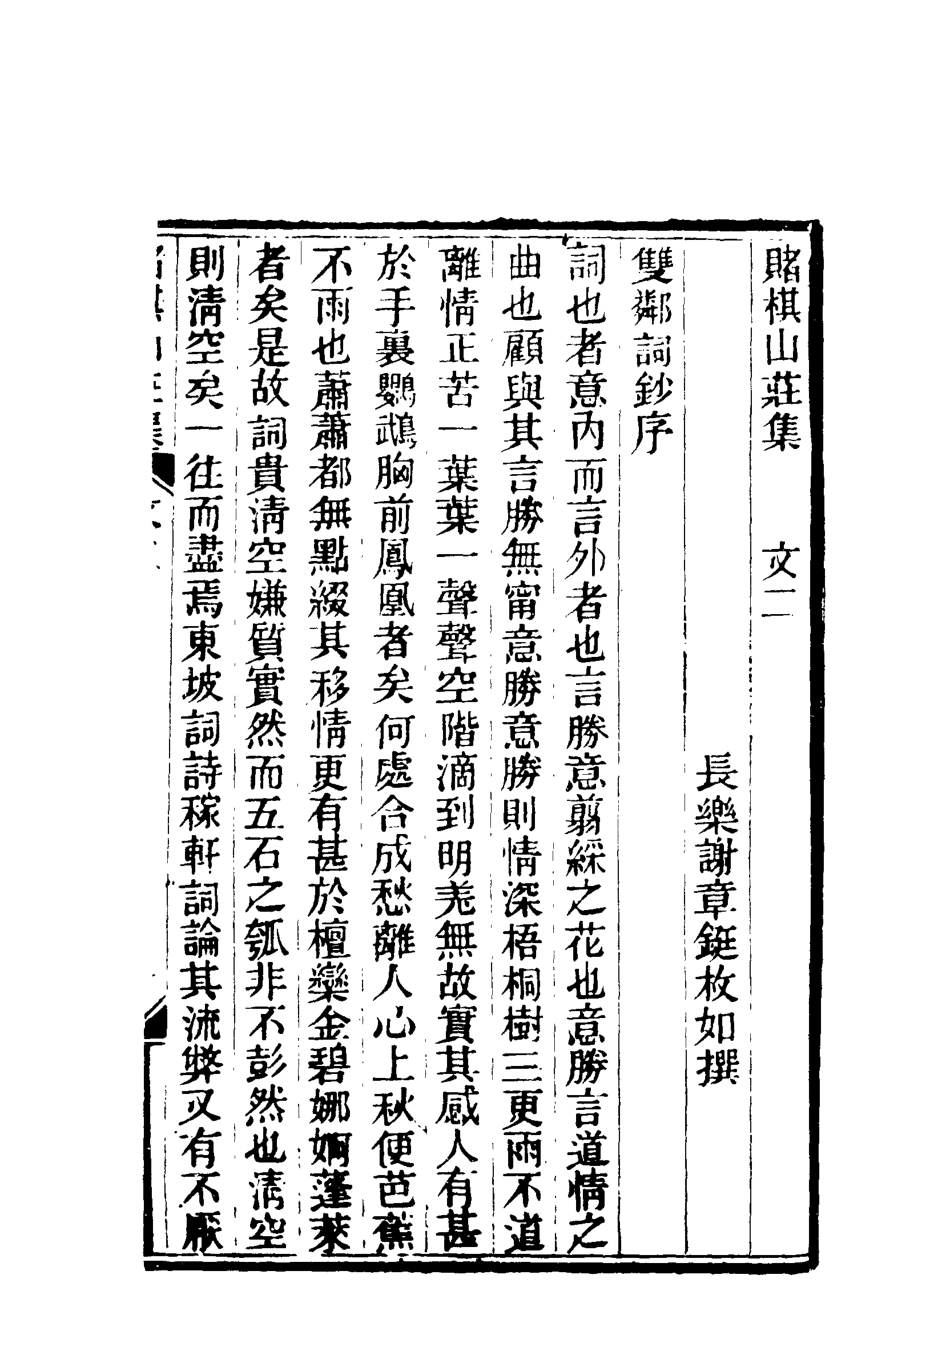 賭棋山莊集　文二
長樂謝章鋌枚如撰
雙鄰詞鈔序
詞也者意內而言外者也言勝意剪綵之花也意勝言道情之
曲也顧與其言勝無甯意勝意勝則情深梧桐樹三更雨不道
離情正苦一葉葉一聲聲空階滴到明羌無故實其感人有甚
於手裏鸚鵡胸前鳳凰者矣何處合成愁離人心上秋便芭蕉
不雨也蕭蕭都無點綴其移情更有甚於檀欒金碧娜婀蓬萊
者矣是故詞貴清空嫌質實然而五石之瓠非不彭然也清空
則清空矣一往而盡焉東坡詞詩稼軒詞論其流弊又有不厭